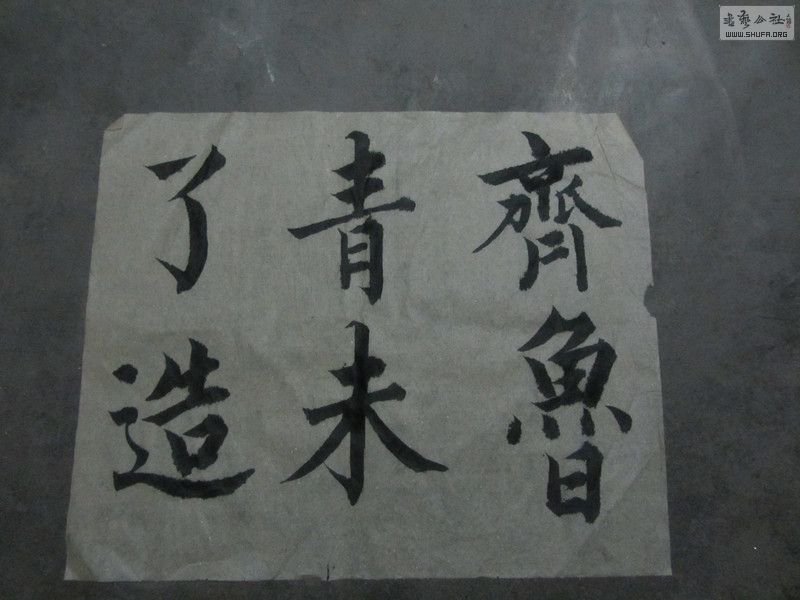 齊魯
青未
了造
書藝公社
WWW.SHUFA.ORG